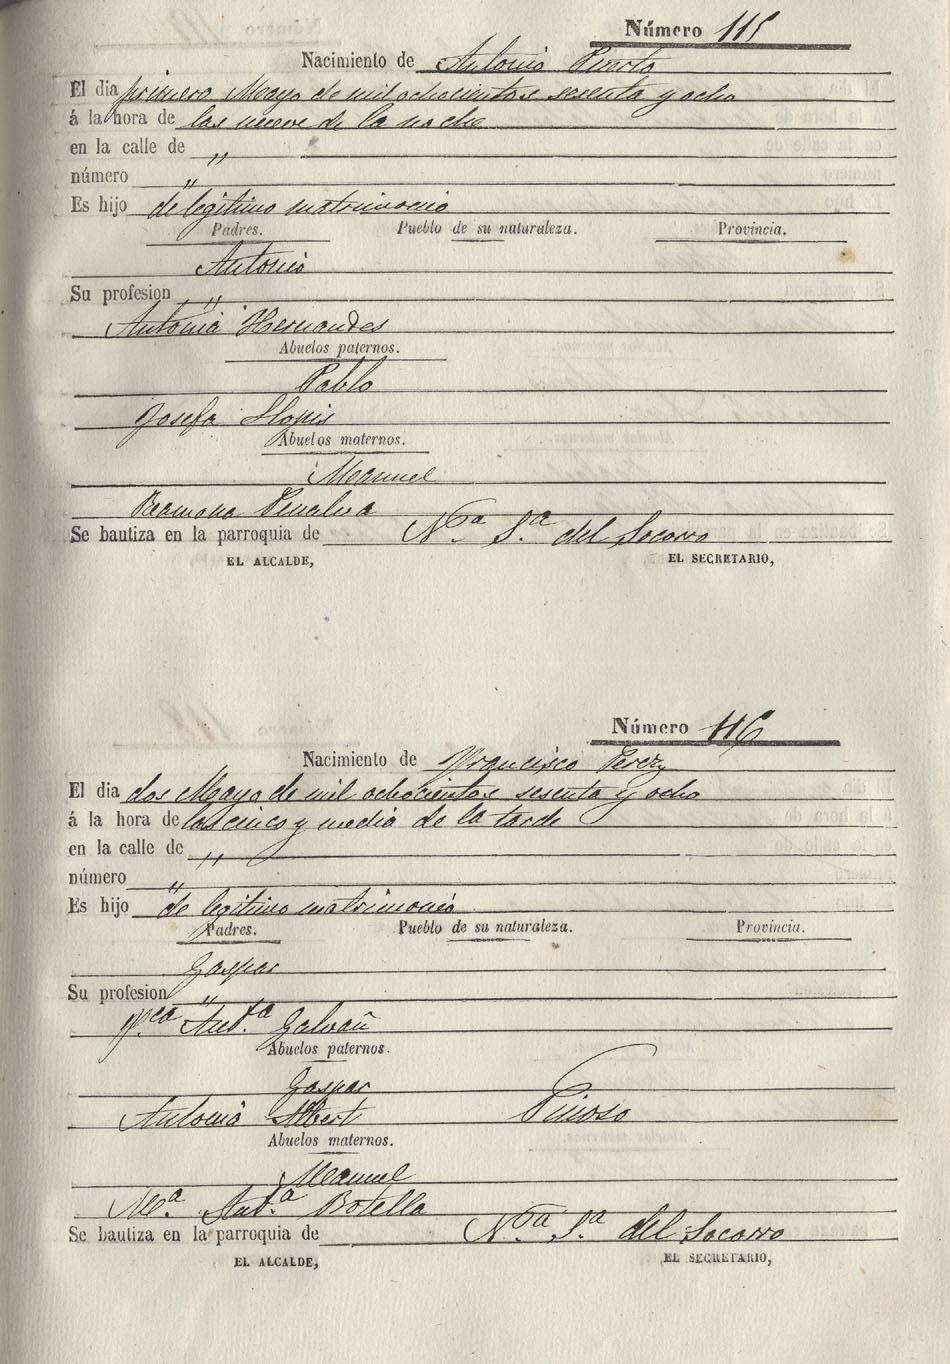 Número 115
Nacimiento de Antonio Puerto
El dia primero Mayo de mil ochocientos sesenta y ocho
á la hora de las nueve de la noche
en la calle de "
número "
Es hijo de legitimo matrimonio
Padres. Pueblo de su naturaleza. Provincia.
Antonio
Su profesion "
Antonia Hernandes
Abuelos paternos.
Pablo
Josefa Llopis
Abuelos maternos.
Manuel
Ramona Penalva
Se bautiza en la parroquia de Nª Sª del Socorro
EL ALCALDE, EL SECRETARIO,
Número 116
Nacimiento de Francisco Perez
El dia dos Mayo de mil ochocientos sesenta y ocho
á la hora de las cinco y media de la tarde
en la calle de "
número "
Es hijo de legitimo matrimonio
Padres. Pueblo de su naturaleza. Provincia.
Gaspar
Su profesion "
Fca Antª Galvañ
Abuelos paternos.
Gaspar
Antonia Albert Pinoso
Abuelos maternos.
Manuel
Mª Antª Botella
Se bautiza en la parroquia de Nª Sª del Socorro
EL ALCALDE, EL SECRETARIO,